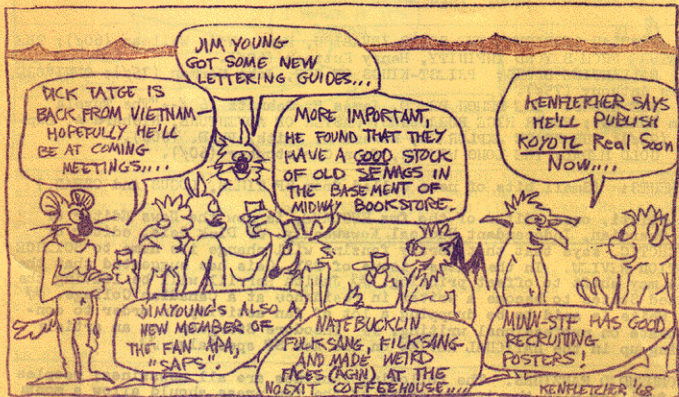 JIM YOUNG
GOT SOME NEW
LETTERING GUIDES...
DICK TATGE IS
BACK FROM VIETNAM—
HOPEFULLY HE'LL
BE AT COMING
MEETINGS....
MORE IMPORTANT,
HE FOUND THAT THEY
HAVE A GOOD STOCK
OF OLD SEMAGS IN
THE BASEMENT OF
MIDWAY BOOKSTORE.
KENFLETCHER SAYS
HE'LL PUBLISH
KOYOTL Real Soon
Now....
JIMYOUNG'S ALSO
NEW MEMBER OF
THE FAN APA,
"SAPS".
NATEBUCKLIN
FULKSANG, FILKSANG
AND MADE WEIRD
FACES (AGIN) AT THE
NOEXIT COFFEEHOUSE....
MINN-STF HAS GOOD
RECRUITING
POSTERS!
KENFLETCHER '68